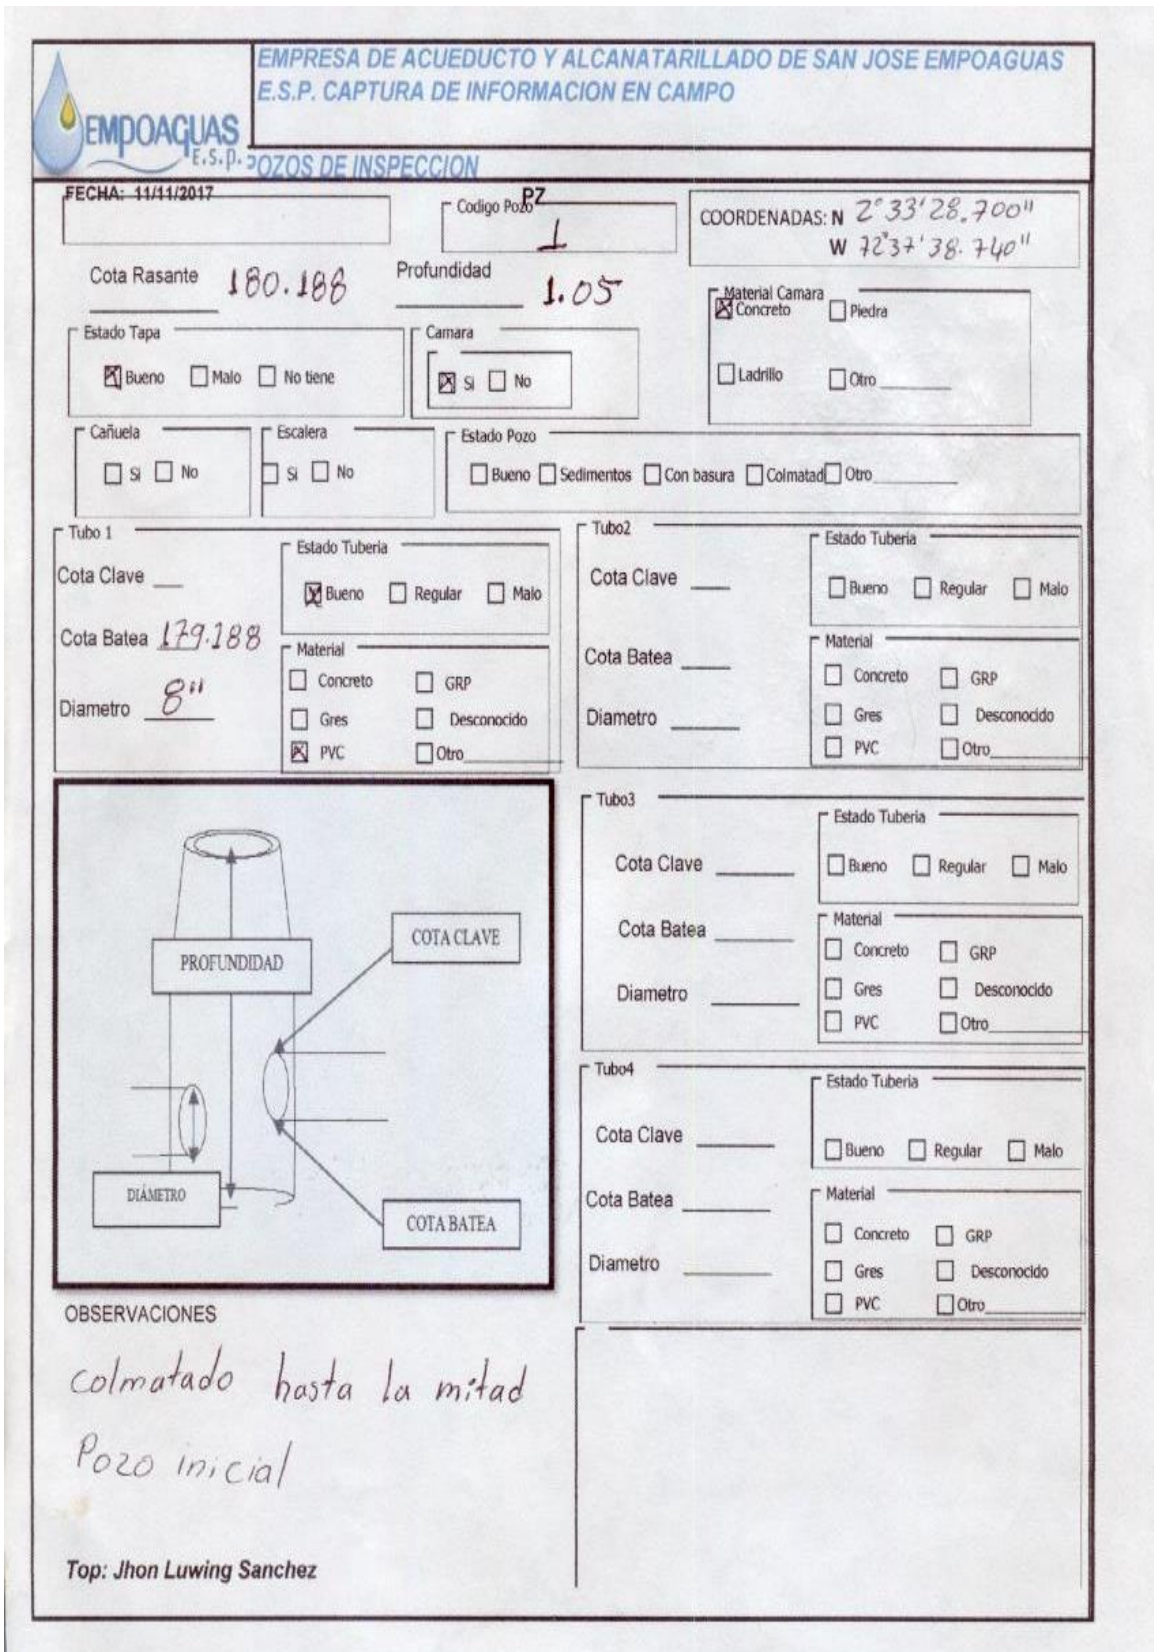 EMPRESA DE ACUEDUCTO Y ALCANATARILLADO DE SAN JOSE EMPOAGUAS
E.S.P. CAPTURA DE INFORMACION EN CAMPO
EMPOAGUAS
E.S.P.
POZOS DE INSPECCION
FECHA: 11/11/2017
Codigo Pozo PZ
1
COORDENADAS: N 2°33'28.700"
W 72°37'38.740"
Cota Rasante 180.188
Profundidad 1.05
Material Camara
☒ Concreto ☐ Piedra
☐ Ladrillo ☐ Otro
Estado Tapa
☒ Bueno ☐ Malo ☐ No tiene
Camara
☒ Si ☐ No
Cañuela
☐ Si ☐ No
Escalera
☐ Si ☐ No
Estado Pozo
☐ Bueno ☐ Sedimentos ☐ Con basura ☐ Colmatad ☐ Otro
Tubo 1
Cota Clave
Cota Batea 179.188
Diametro 8"
Estado Tuberia
☒ Bueno ☐ Regular ☐ Malo
Material
☐ Concreto ☐ GRP
☐ Gres ☐ Desconocido
☒ PVC ☐ Otro
Tubo2
Cota Clave
Cota Batea
Diametro
Estado Tuberia
☐ Bueno ☐ Regular ☐ Malo
Material
☐ Concreto ☐ GRP
☐ Gres ☐ Desconocido
☐ PVC ☐ Otro
PROFUNDIDAD
COTA CLAVE
DIÁMETRO
COTA BATEA
Tubo3
Cota Clave
Cota Batea
Diametro
Estado Tuberia
☐ Bueno ☐ Regular ☐ Malo
Material
☐ Concreto ☐ GRP
☐ Gres ☐ Desconocido
☐ PVC ☐ Otro
Tubo4
Cota Clave
Cota Batea
Diametro
Estado Tuberia
☐ Bueno ☐ Regular ☐ Malo
Material
☐ Concreto ☐ GRP
☐ Gres ☐ Desconocido
☐ PVC ☐ Otro
OBSERVACIONES
colmatado hasta la mitad
Pozo inicial
Top: Jhon Luwing Sanchez